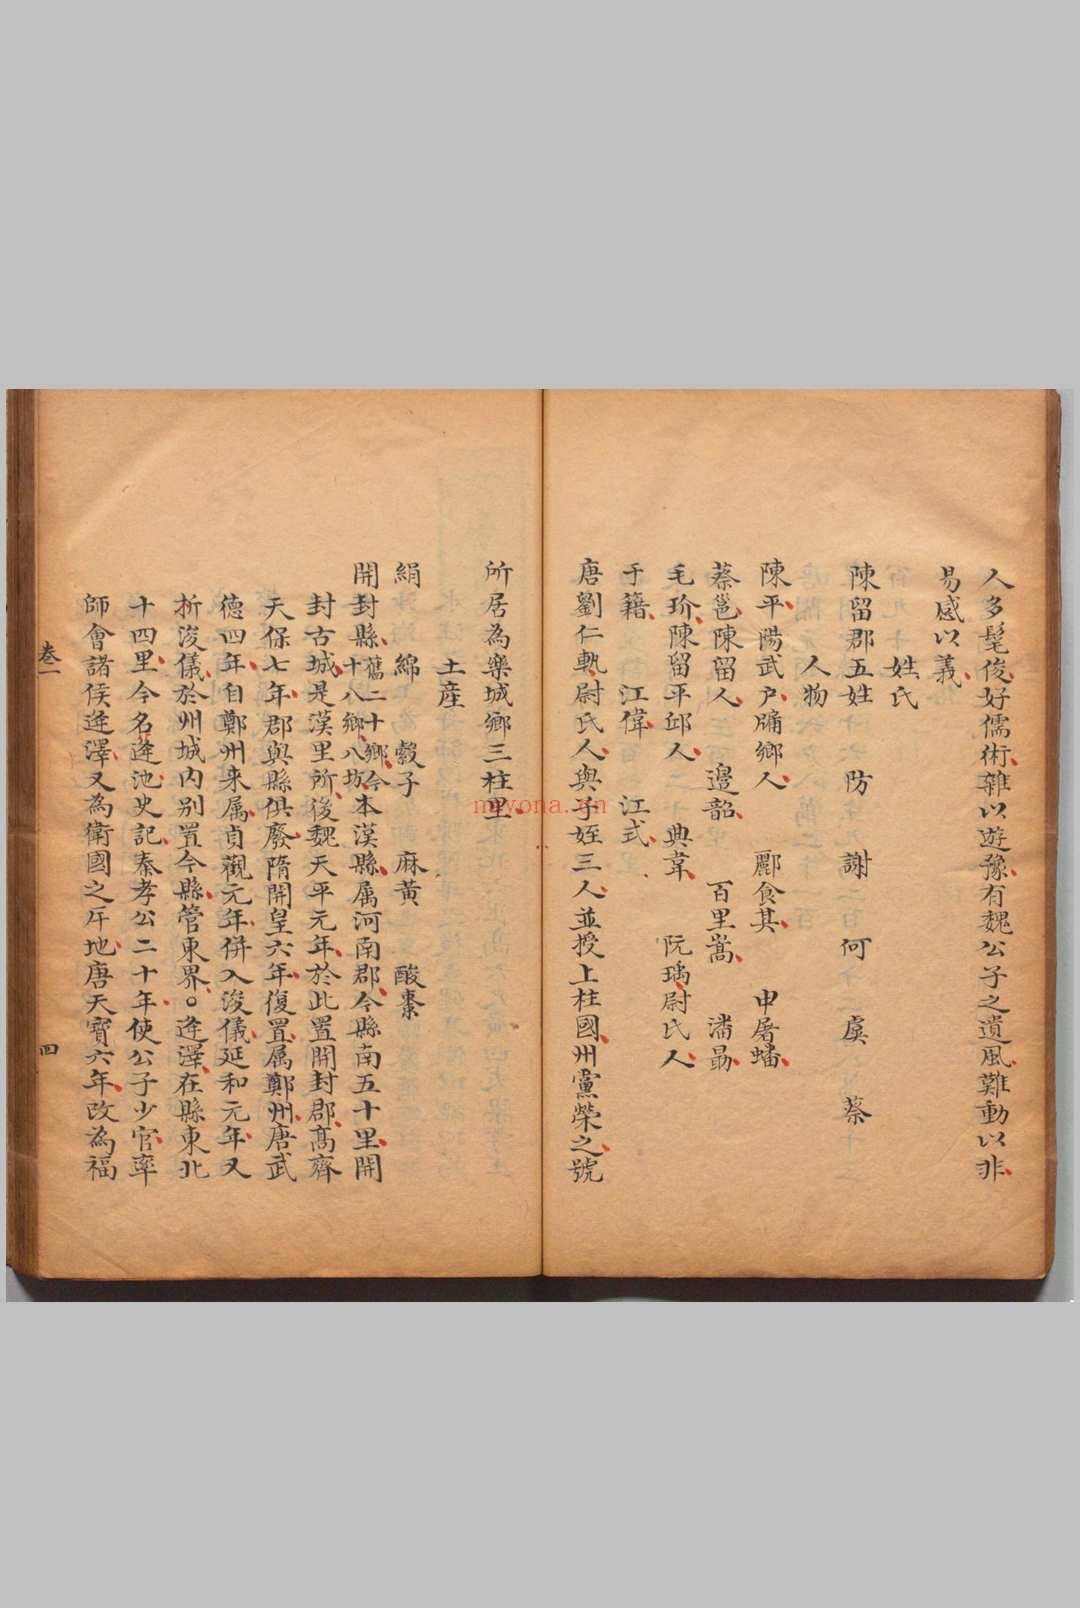 人多髦俊好儒術雜以遊豫有魏公子之遺風難動以非
易感以義
姓氏
陳留郡五姓 防 謝 何 虞 蔡
人物
陳平陽武户牖鄉人 酈食其 申屠蟠
蔡邕陳留人 邊韶 百里嵩 潘勗
毛玠陳留平邱人 典韋 阮瑀尉氏人
于籍 江偉 江式
唐劉仁軌尉氏人與子姪三人並授上柱國州黨榮之號
所居為樂城鄉三柱里
土産
絹 綿 縠子 麻黃 酸棗
開封縣舊二十鄉今十八鄉八坊本漢縣属河南郡今縣南五十里開
封古城是漢里所後魏天平元年於此置開封郡高齊
天保七年郡與縣俱廢隋開皇六年復置属鄭州唐武
德四年自鄭州来属貞觀元年併入浚儀延和元年又
析浚儀於州城内别置今縣管東界。逄澤在縣東北
十四里今名逄池史記秦孝公二十年使公子少官率
師會諸侯逄澤又為衛國之斥地唐天寳六年改為福
卷一
四
miyona.cn